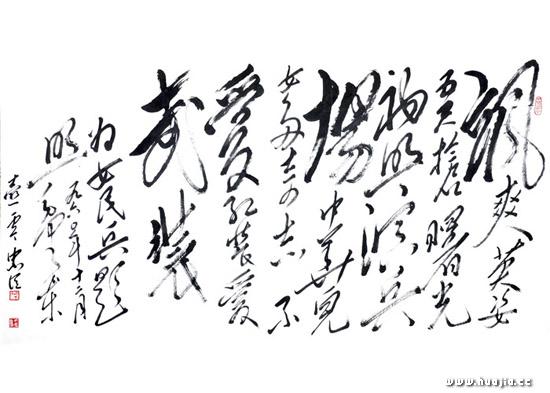 颯爽英姿
五尺槍曙光
初照演兵
場中華兒
女多奇志不
愛红装愛
武装
为女民兵题
照
www.huajia.cc